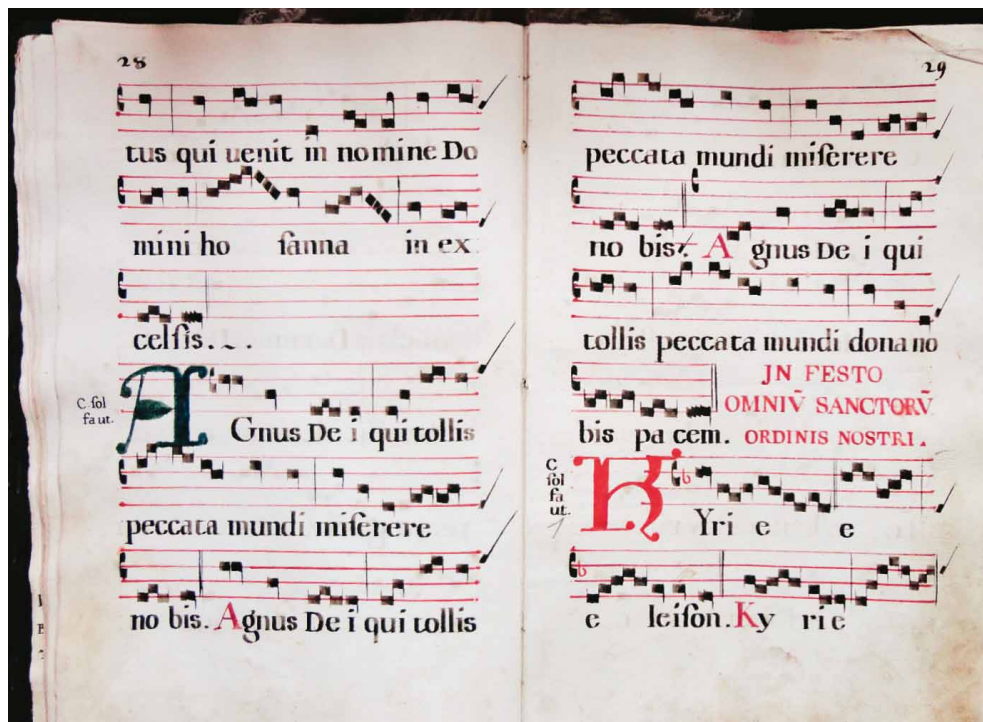 28
tus qui uenit in nomine Do
mini ho ſanna in ex
celſis.
C ſol
fa ut.
AGnus De i qui tollis
peccata mundi miſerere
no bis. Agnus De i qui tollis
29
peccata mundi miſerere
no bis. Agnus De i qui
tollis peccata mundi dona no
bis pa cem.
JN FESTO
OMNIV̄ SANCTORV̄
ORDINIS NOSTRI.
C
ſol
fa
ut.
KYri e e
e leiſon. Ky ri e